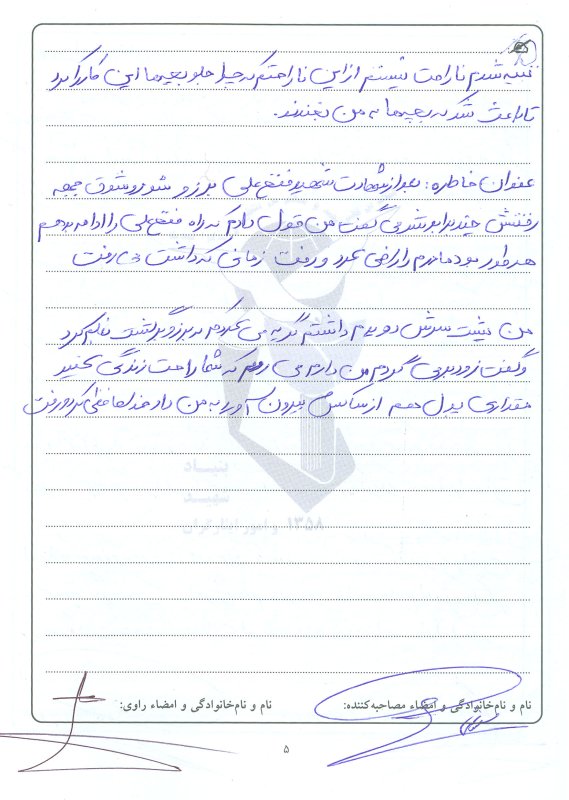 تنبیه شدم ناراحت نیستم از این ناراحتم که چرا جلو بچه‌ها این کار را کرد
تا باعث شد که بچه‌ها به من بخندند.
عنوان خاطره: بعد از شهادت شهید فتحعلی برزو شور و شوق جبهه
رفتنش چند برابر شد می گفت من قول دادم که راه فتحعلی را ادامه بدهم
هر طور بود مادرم را راضی کرد و رفت زمانی که داشت می رفت
من پشت سرش دویدم داشتم گریه می کردم که برزو برگشت نگاهم کرد
و گفت زود برمی گردم من دارم می روم که شما راحت زندگی کنید
مقداری پول هم از ساکش بیرون آورد به من داد خداحافظی کرد و رفت
بنیاد
شهید
و امور ایثارگران
۱۳۵۸
نام و نام‌خانوادگی و امضاء مصاحبه‌کننده:
نام و نام‌خانوادگی و امضاء راوی:
۵